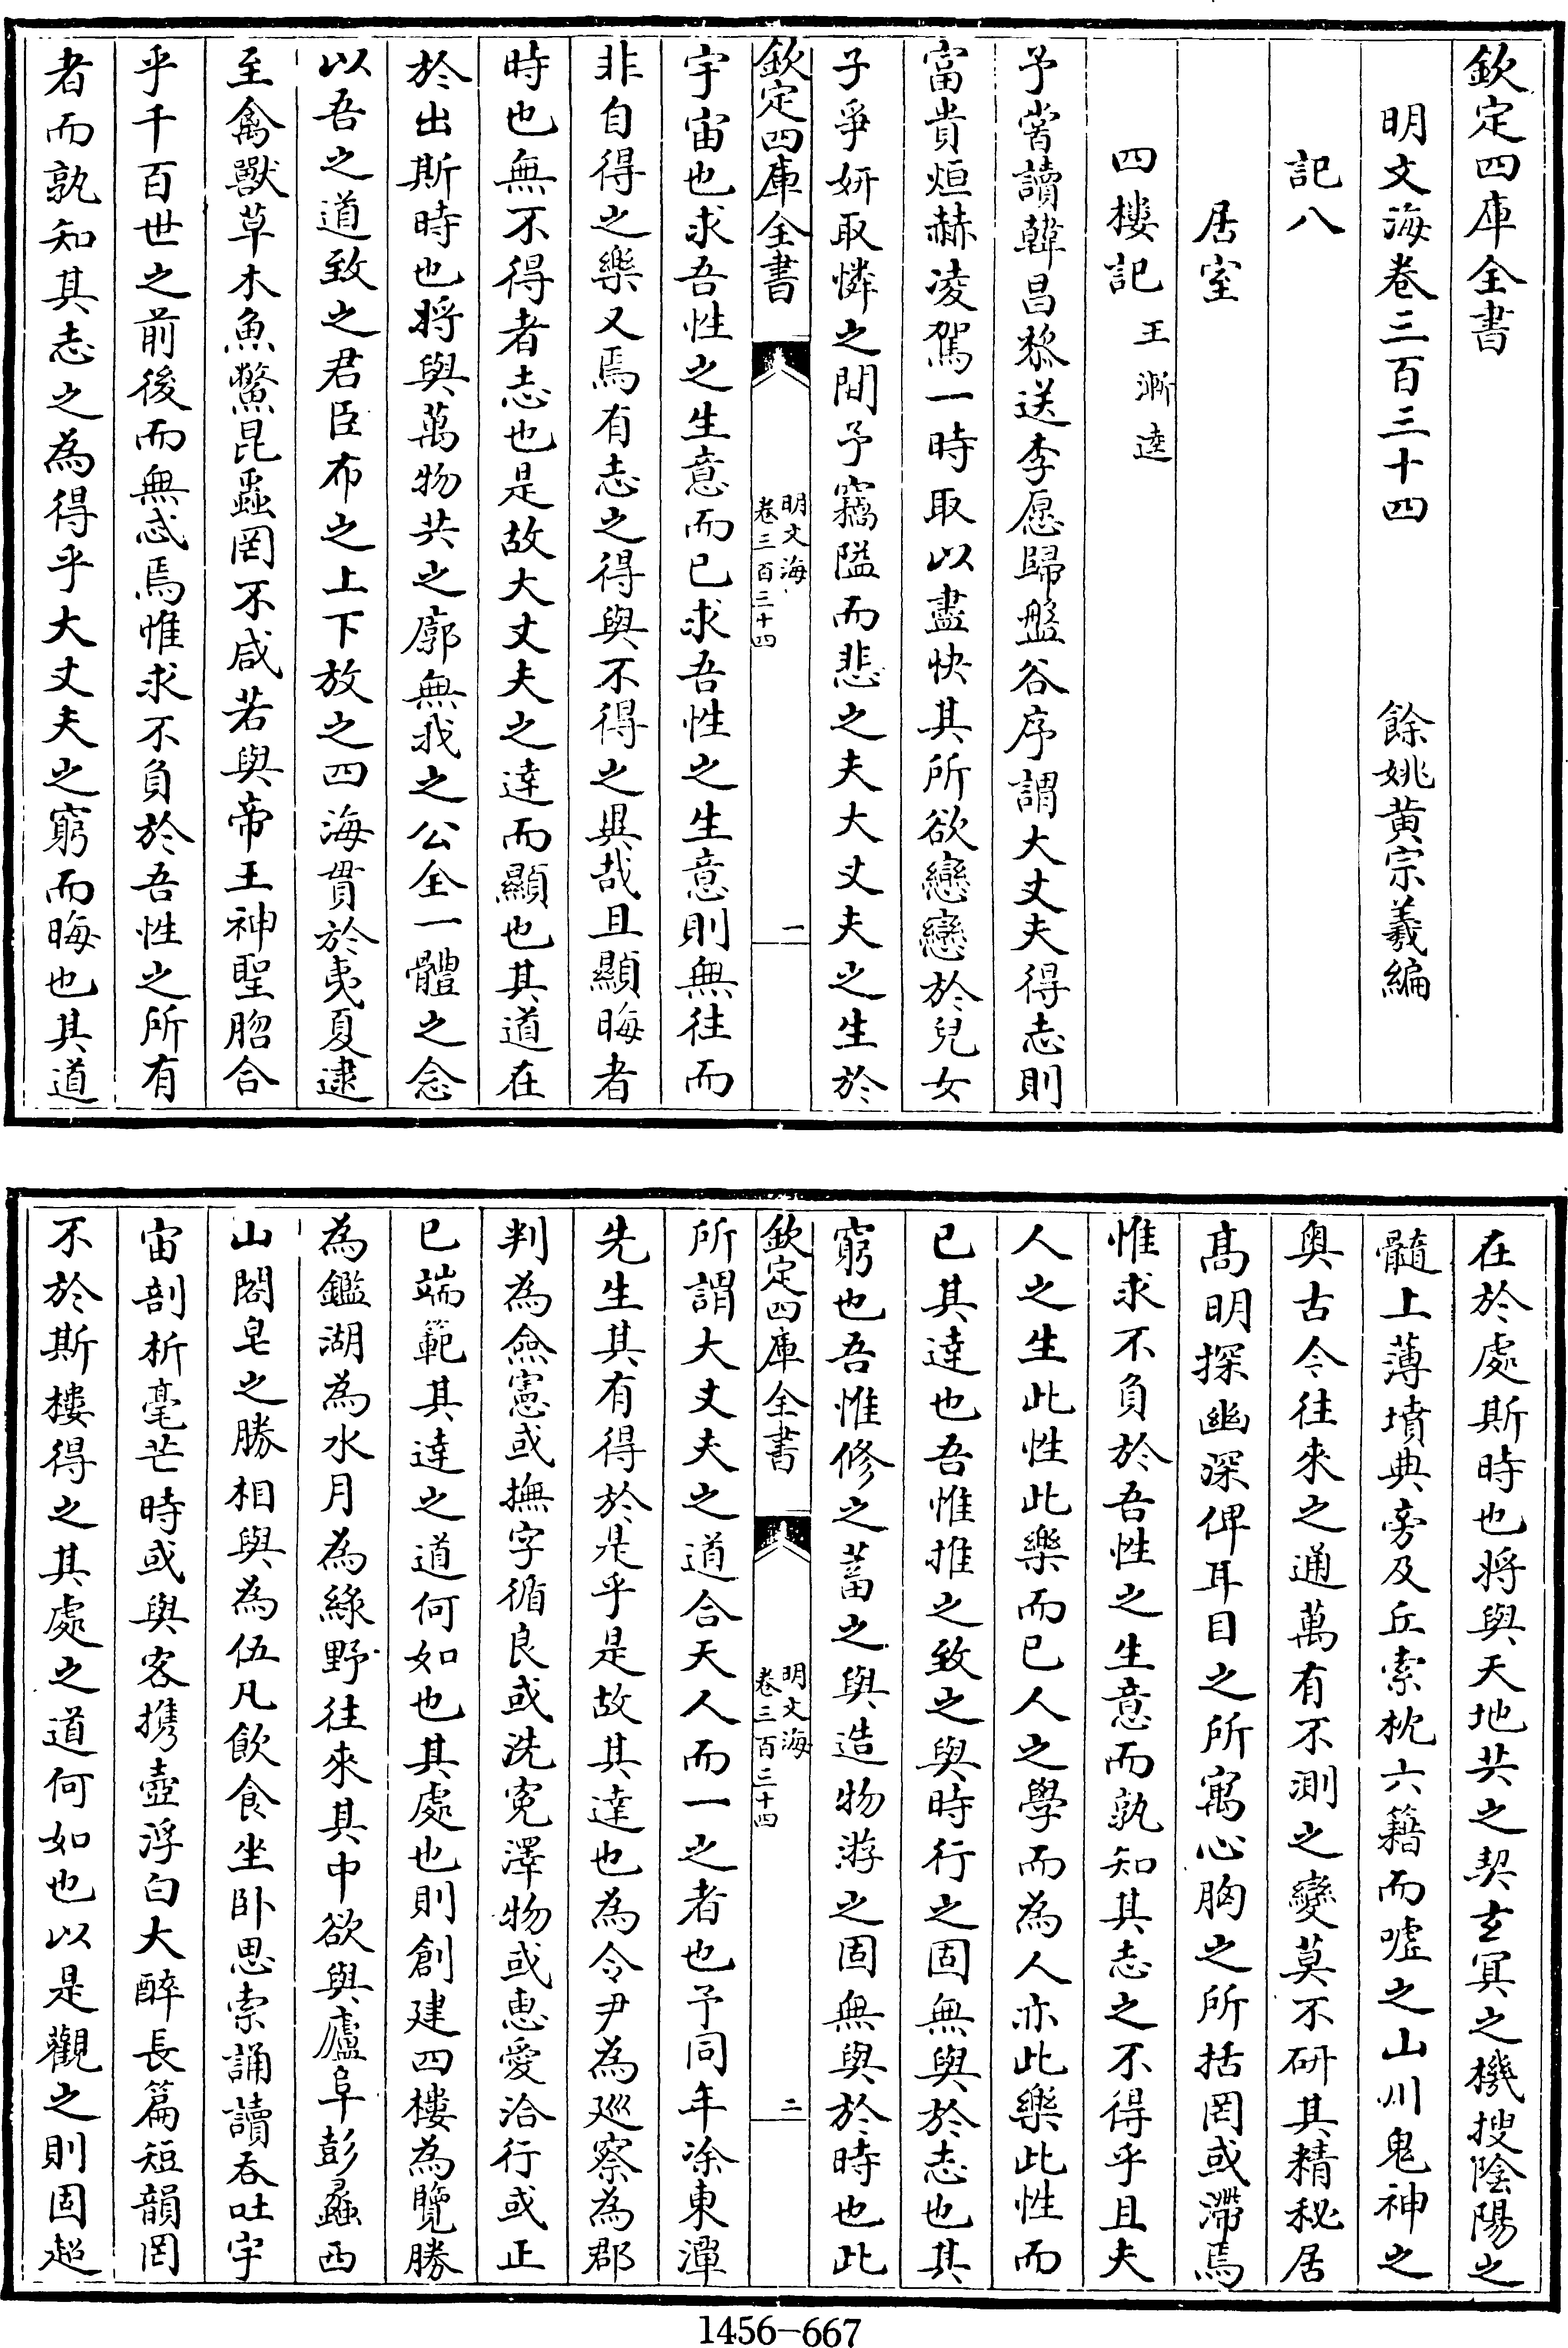 欽定四庫全書
明文海卷三百三十四　餘姚黄宗羲編
記八
居室
四樓記 王漸逵
予嘗讀韓昌黎送李愿歸盤谷序謂大丈夫得志則
富貴烜赫凌駕一時取以盡快其所欲戀戀於兒女
子爭妍取憐之間予竊隘而悲之夫大丈夫之生於
欽定四庫全書　明文海 卷三百三十四　一
宇宙也求吾性之生意而已求吾性之生意則無往而
非自得之樂又焉有志之得與不得之異哉且顯晦者
時也無不得者志也是故大丈夫之達而顯也其道在
於出斯時也將與萬物共之廓無我之公全一體之念
以吾之道致之君臣布之上下放之四海貫於夷夏逮
至禽獸草木魚鱉昆蟲罔不咸若與帝王神聖脗合
乎千百世之前後而無惑焉惟求不負於吾性之所有
者而孰知其志之為得乎大丈夫之窮而晦也其道
在於處斯時也將與天地共之契玄冥之機搜陰陽之
髓上薄墳典旁及丘索枕六籍而噓之山川鬼神之
奥古今往來之通萬有不測之變莫不研其精秘居
髙明探幽深俾耳目之所寓心胸之所括罔或滯焉
惟求不負於吾性之生意而孰知其志之不得乎且夫
人之生此性此樂而已人之學而為人亦此樂此性而
已其達也吾惟推之致之與時行之固無與於志也其
窮也吾惟修之蓄之與造物游之固無與於時也此
欽定四庫全書　明文海 卷三百三十四　二
所謂大丈夫之道合天人而一之者也予同年涂東潭
先生其有得於是乎是故其達也為令尹為廵察為郡
判為僉憲或撫字循良或洗寃澤物或惠愛洽行或正
已端範其達之道何如也其處也則創建四樓為覽勝
為鑑湖為水月為綠野往來其中欲與廬阜彭蠡西
山閤皂之勝相與為伍凡飲食坐卧思索誦讀吞吐宇
宙剖析毫芒時或與客携壺浮白大醉長篇短韻罔
不於斯樓得之其處之道何如也以是觀之則固超
1456—667